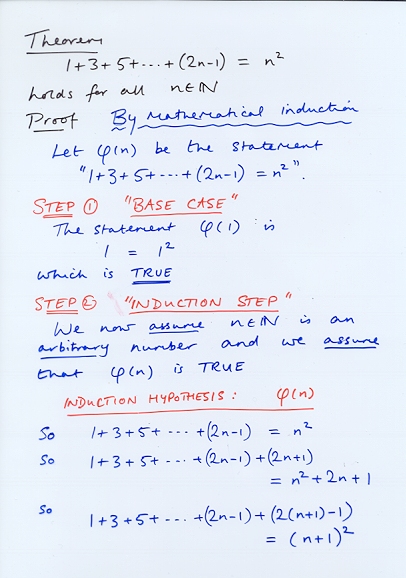 Theorem
1+3+5+···+(2n-1) = n²
holds for all n∈ℕ
Proof By Mathematical induction
Let φ(n) be the statement
"1+3+5+···+(2n-1) = n²".
STEP ① "BASE CASE"
The statement φ(1) is
1 = 1²
which is TRUE
STEP ② "INDUCTION STEP"
We now assume n∈ℕ is an
arbitrary number and we assume
that φ(n) is TRUE
INDUCTION HYPOTHESIS : φ(n)
So 1+3+5+ ··· +(2n-1) = n²
So 1+3+5+ ··· +(2n-1)+(2n+1)
= n²+2n+1
So 1+3+5+ ··· +(2n-1)+(2(n+1)-1)
= (n+1)²